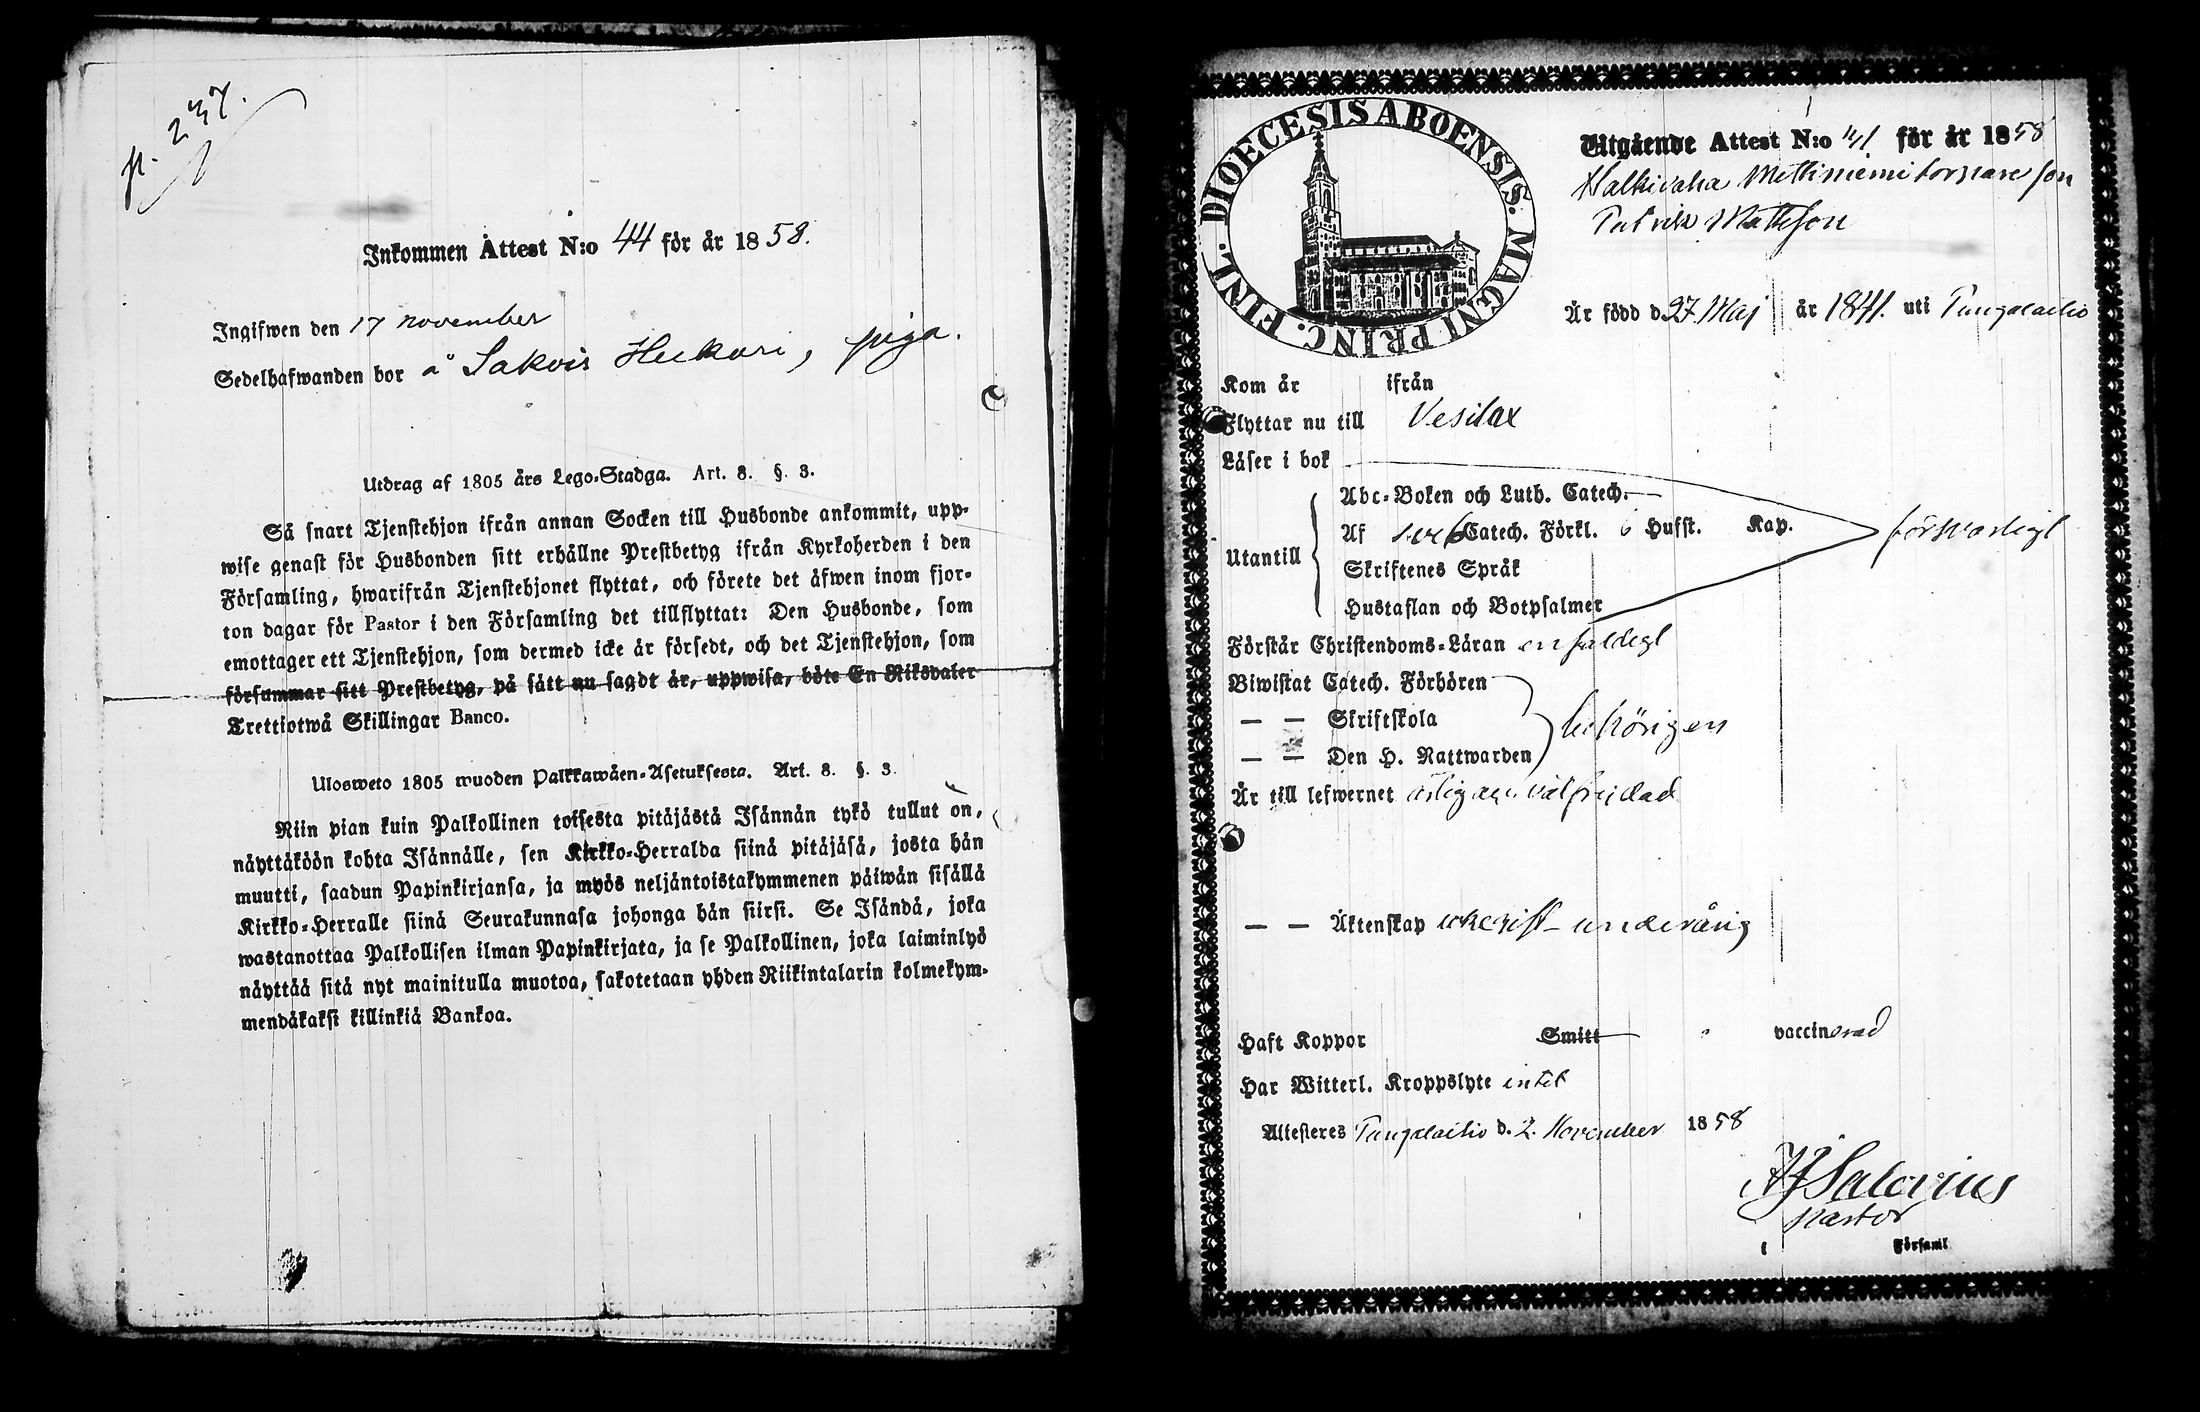 p. 237.
Inkommen Attest N:o 44 för år 1858.
Ingifwen den 17 november
Sedelhafwanden bor å Sakois Heikari, piga.
Utdrag af 1805 års Lego-Stadga. Art. 8. §. 3.
Så snart Tjenstehjon ifrån annan Socken till Husbonde ankommit, upp-
wise genast för Husbonden sitt erhållne Prestbetyg ifrån Kyrkoherden i den
Församling, hwarifrån Tjenstehjonet flyttat, och förete det äfwen inom fjor-
ton dagar för Pastor i den Församling det tillflyttat: Den Husbonde, som
emottager ett Tjenstehjon, som dermed icke är försedt, och det Tjenstehjon, som
försummar sitt Prestbetyg, på sätt nu sagdt är, uppwisa, böte En Riksdaler
Trettiotwå Skillingar Banco.
Ulosweto 1805 wuoden Palkkawäen-Asetuksesta. Art. 8. §. 3.
Niin pian kuin Palkollinen toisesta pitäjästä Isännän tykö tullut on,
näyttäköön kohta Isännälle, sen Kirkko-Herralda siinä pitäjäsä, josta hän
muutti, saadun Papinkirjansa, ja myös neljäntoistakymmenen päiwän sisällä
Kirkko-Herralle siinä Seurakunnasa johonga hän siirsi. Se Isändä, joka
wastanottaa Palkollisen ilman Papinkirjata, ja se Palkollinen, joka laiminlyö
näyttää sitä nyt mainitulla muotoa, sakotetaan yhden Riikintalarin kolmekym-
mendäkaksi killinkiä Bankoa.
DIOECESIS ABOENSIS. MAGNI PRINC. FINL.
Utgående Attest N:o 41 för år 1858
Halkivaha Mettiniemi torpare son
Patrik Mattsson
Är född d. 27 Maj år 1841. uti Pungalaitio
Kom år ifrån
Flyttar nu till Vesilax
Läser i bok
Abc-Boken och Luth. Catech.
Utantill Af Catech. Förkl. 6 Hufst. Kap. försvarligt
Skriftenes Språk
Hustaflan och Botpsalmer
Förstår Christendoms-Läran enfaldigt
Biwistat Catech. Förhören
— — Skriftskola behörigen
— — Den H. Nattwarden
Är till lefwernet ärlig och välfrejdad
— — Äktenskap underårig
Haft Koppor Smitt vaccinerad
Har Witterl. Kroppslyte intet
Attesteres Pungalaitio d. 2. November 1858
Pastor
i Församl